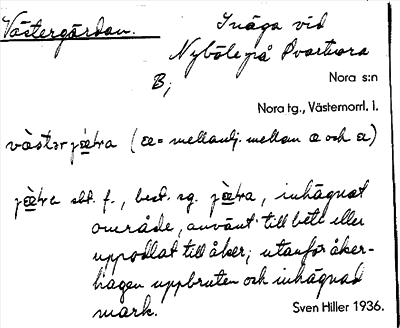 Västergärdan.
Inäga vid
Nyböle på Svartnora
B;
Nora s:n
Nora tg., Västernorrl. l.
(æ = mellanlj. mellan a och æ)
sbt. f., best. sg. inhägnat
område, använt till bete eller
uppodlat till åker; utanför åker-
hagen uppbruten och inhägnad
mark.
Sven Hiller 1936.